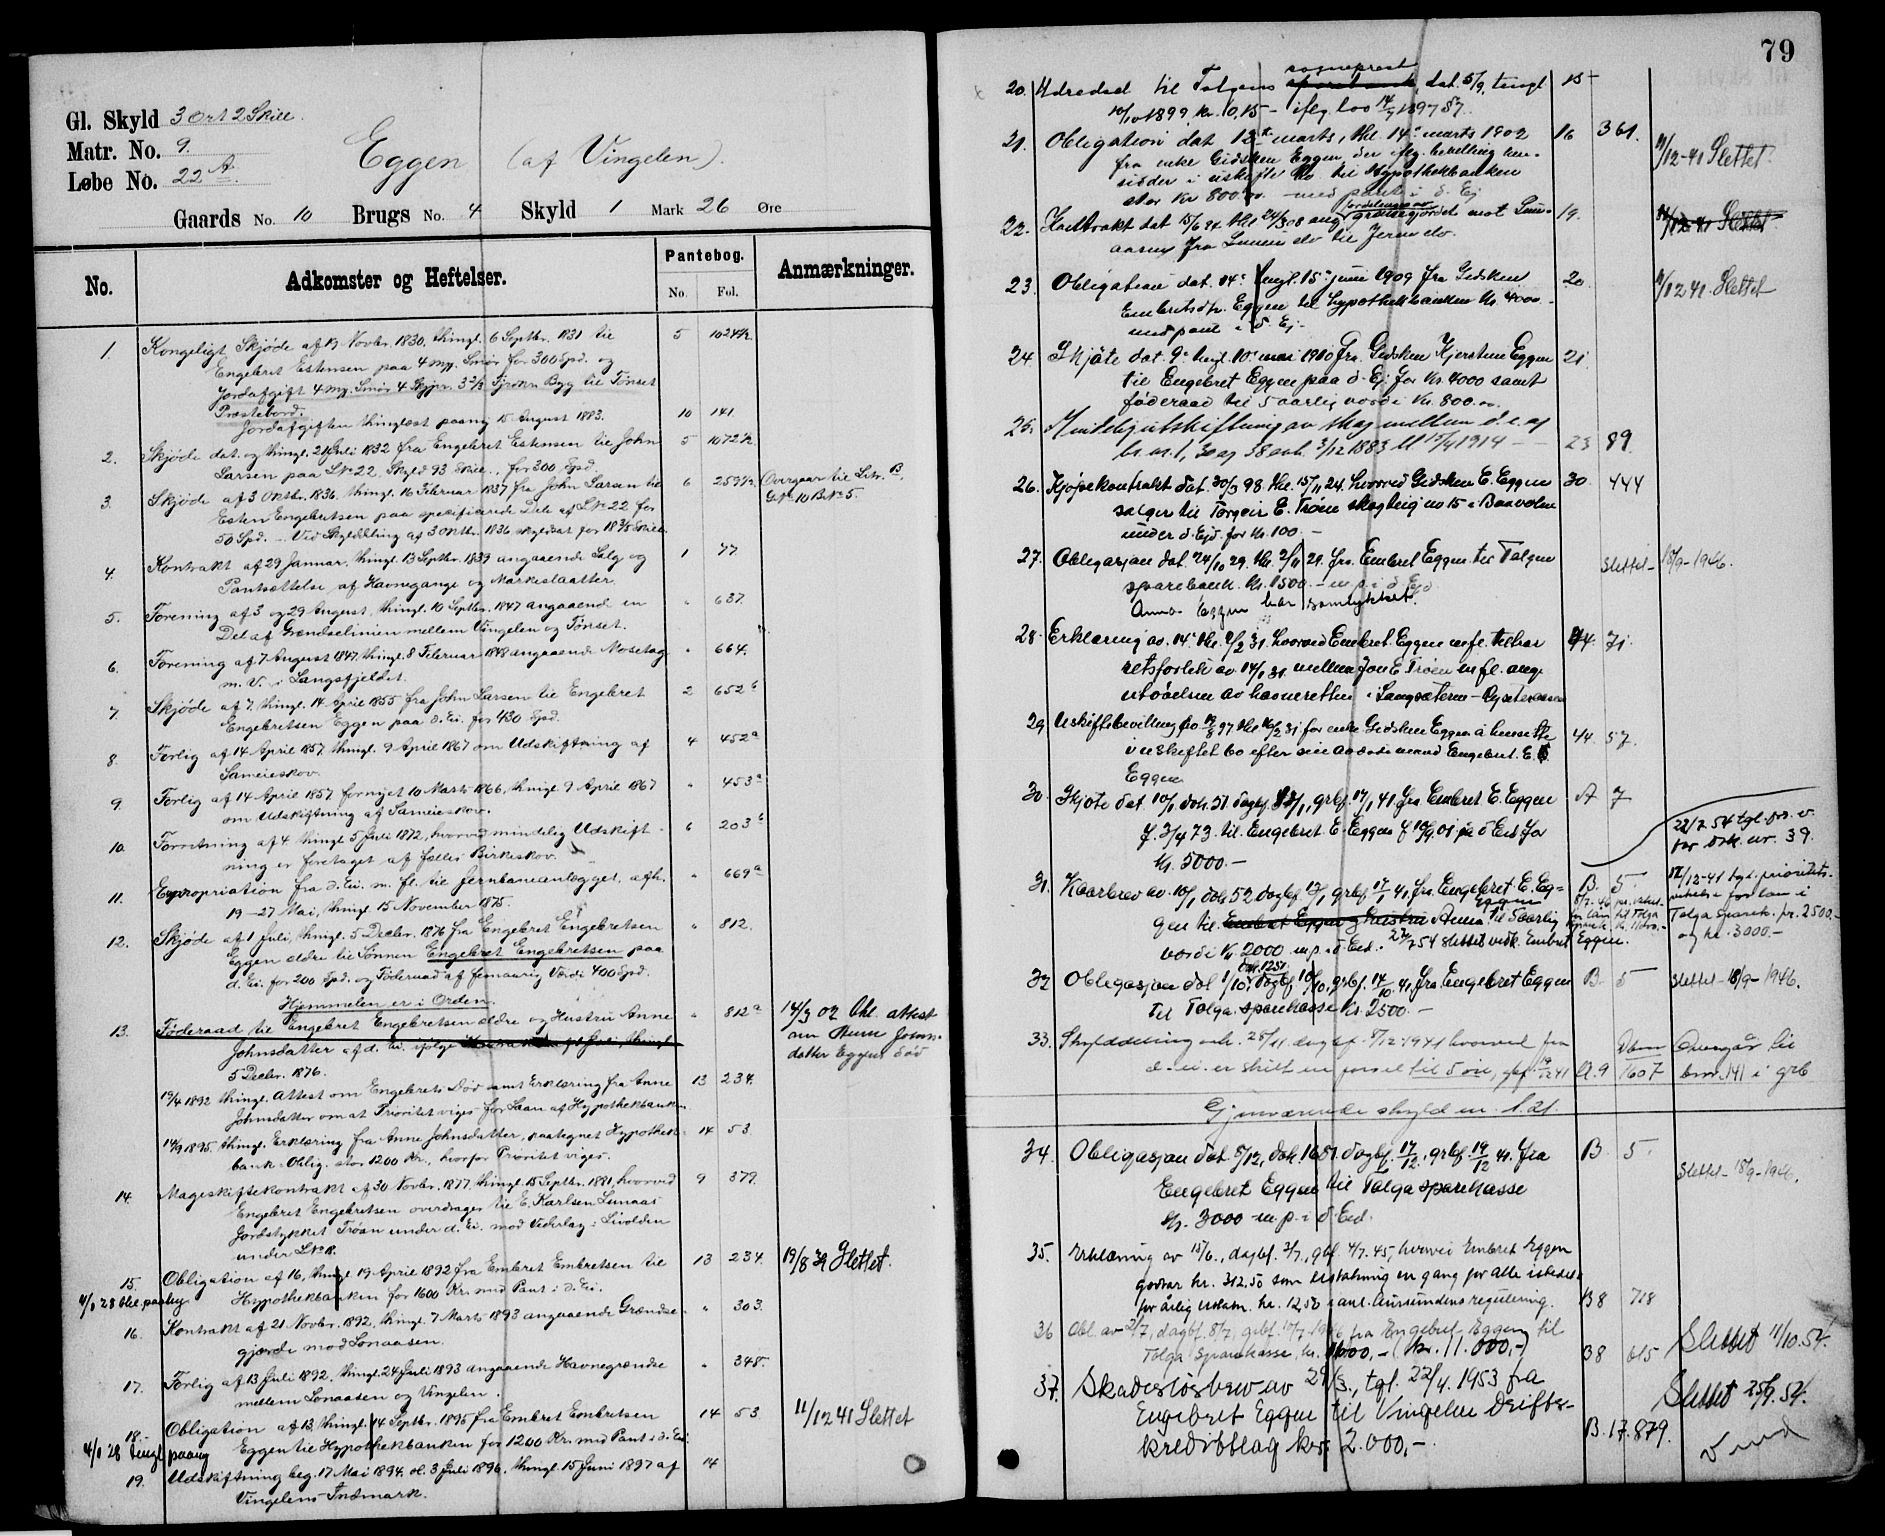 Gl. Skyld 3 Ort 2 Skill.
Matr. No. 9.
Løbe No. 22 A.
Eggen (af Vingelen).
Gaards No. 10 Brugs No. 4 Skyld 1 Mark 26 Øre
No. Adkomster og Heftelser. Pantebog. Anmærkninger.
No. Fol.
1. Kongeligt Skjøde af 19 Novbr. 1830, thingl. 6 Septbr. 1831 til 5 1024b.
Engebret Estensen paa 4 mrk. Smør for 300 Spd. og
Jordafgift 4 mrk. Smør 4 Skpr. 3 2/3 Fjrdkr. Byg til Tønset
Præstebord.
Jordafgiften thinglæst paany 15 August 1883. 10 141.
2. Skjøde dat. og thingl. 21 Juli 1832 fra Engebret Estensen til John 5 1072b.
Larsen paa L.No 22, Skyld 93 Skill., for 300 Spd.
3. Skjøde af 3 Oktbr. 1836, thingl. 16 Februar 1837 fra John Larsen til 6 259b. Overgaar til Litr. B.
Esten Engebretsen paa specificerede Dele af L.No 22 for G.No 10 B.No 5.
50 Spd. - Ved Skylddeling af 3 Oktbr. 1836 skyldsat for 18 2/5 Skill.
4. Kontrakt af 29 Januar, thingl. 13 Septbr. 1839 angaaende Salg og 1 77.
Pantsættelse af Havnegange og Markeslaatter.
5. Forening af 3 og 29 August, thingl. 10 Septbr. 1847 angaaende en " 637.
Del af Grændselinien mellem Vingelen og Tønset.
6. Forening af 7 August 1847, thingl. 8 Februar 1848 angaaende Mosetag " 664.
m. v. i Langsfjeldet.
7. Skjøde af 7, thingl. 14 April 1855 fra John Larsen til Engebret 2 652b
Engebretsen Eggen paa d. Ei. for 430 Spd.
8. Forlig af 14 April 1857, thingl. 9 April 1867 om Udskiftning af 4 452a
Sameieskov.
9. Forlig af 14 April 1857 fornyet 10 Marts 1866, thingl. 9 April 1867 " 453a
om Udskiftning af Sameieskov.
10. Forretning af 4 thingl. 5 Juli 1872, hvorved mindelig Udskift- 6 203b
ning er foretaget af fælles Birkeskov.
11. Expropriation fra d. Ei. m. fl. til Jernbaneanlægget, afh. " 669a
19-27 Mai, thingl. 15 November 1875.
12. Skjøde af 1 Juli, thingl. 5 Decbr. 1876 fra Engebret Engebretsen " 812.
Eggen ældre til Sønnen Engebret Engebretsen paa
d. Ei. for 200 Spd. og Føderaad af femaarig Værdi 400 Spd.
Hjemmelen er i Orden.
13. Føderaad til Engebret Engebretsen ældre og Hustru Anne " 812a 14/3 02 thl. attest
Johnsdatter af d. Ei. ifølge Kontrakt af 1 Juli, thingl. om Anne Johns-
5 Decbr. 1876. datter Eggens død
19/4 1892 thingl. Attest om Engebrets Død samt Erklæring fra Anne 13 234.
Johnsdatter om at Prioritet viges for Laan af Hypothekbanken.
14/9 1895. thingl. Erklæring fra Anne Johnsdatter, paategnet Hypothek- 14 53.
bank-Oblig. stor 1200 Kr., hvorfor Prioritet viges.
14. Mageskiftekontrakt af 30 Novbr. 1877, thingl. 15 Septbr. 1881, hvorved 9 379.
Engebret Engebretsen overdrages til E. Karlsen Lunaas
Jordstykket Trøan under d. Ei. mod Vederlag i Livolden
under L.No
15. Obligation af 16, thingl. 19 April 1892 fra Embret Embretsen til 13 234. 19/8 Slettet.
Hypothekbanken for 1600 Kr. med Pant i d. Ei.
4/1 28 thl. paany
16. Kontrakt af 21 Novbr. 1892, thingl. 7 Marts 1893 angaaende Grændse- " 303.
gjærde mod Lonaasen.
17. Forlig af 13 Juli 1892, thingl. 24 Juli 1893 angaaende Havnegrændse " 348.
mellem Lonaasen og Vingelen.
18. Obligation af 13, thingl. 14 Septbr. 1895 fra Embret Embretsen 14 53. 11/12 41 Slettet
Eggen til Hypothekbanken for 1200 Kr. med Pant i d. Ei.
4/1 28 tingl paany
19. Udskiftning beg. 17 Mai 1894, sl. 3 Juli 1896, thingl. 15 Juni 1897 af 14
Vingelens Indmark.
79
20. Udredsel til Tolgens sogneprest dat. 5/9, tingl 15
10/10 1899 kr. 0,15 - iflg. lov 14/7 1897 §7.
21. Obligation dat 12te marts, thl. 14. marts 1902 16 361. 11/12-41 Slettet
fra enke Gidsken Eggen, der iflg. bevilling hen-
sidder i uskiftet Bo til Hypothekbanken
stor Kr 800.00. - med pant i d. Ej
22. Kontrakt dat 15/6 94 thl 24/3 08 ang fordeling av grænsegjærdet mot Lun- 19. 11/12-41 Slettet
aasen fra Lunein elv til Jeren elv.
23. Obligation dat. 14. tingl. 15. juni 1909 fra Gidsken 20 11/12 41. Slettet
Embretsdtr. Eggen til hypothekbanken kr. 4000.
med pant i d. Ej.
24. Skjøte dat. 9. tingl. 10. mai 1910 fra Gidsken Kjerstine Eggen 21
til Engebret Eggen paa d. Ej. for kr. 4000 samt
føderaad til 5 aarlig værdi kr. 800.00.
25. Mindelig utskiftning av skog mellem d. e. og 23 89.
br. nr. 1, 30 og 38 avh. 3/12 1883 tl 15/4 1914 -
26. Kjøpekontrakt dat. 30/3 98. thl. 15/11 24. hvorved Gidsken E. Eggen 30. 444
sælger til Torgeir E. Trøen skogteig no 15 i Baavolen
under d. Ejd. for kr. 100. -
27. Obligasjon dat. 24/10 29. thl. 2/11 29. fra Embret Eggen til Tolgen slettet - 18/9-1946.
sparebank kr. 1500. - m. p. i d. Ejd.
Anna Eggen har samtykket.
28. Erklæring av. 14. thl. 9/2 31. hvorved Embret Eggen m. fl. tiltrær 44. 71.
retsforlik av 14/1 31 mellem Jon E. Trøen m. fl. ang.
utøvelsen av havneretten i Langsæteren -
29. Uskiftebevilling for enke Gidsken Eggen å hensitte 44. 57.
i uskiftet bo efter sin avdøde mand Engebret. E.
Eggen
30. Skjøte dat. 10/1 dok. 51. dagbf. 13/1, grbf. 17/1 41 fra Embret E. Eggen A 7
f. 3/4 73. til Engebret E. Eggen f 10/9 01 på d. Eid. for 22/7 54 tgl.
kr. 5000. - nr. 39.
31. Kaarbrev av. 10/1, dok 52 dagbf. 13/1, grbf. 17/1 41 fra Engebret. E. Eg- B. 5. 17/12-41 tgl. prioritets-
gen til Embret Eggen og hustru Anna Eggen til 5aarlig vikelse for lån i
værdi kr. 2000 m. p. i d. Eid. 22/7 54 slettet vedk. Embret Eggen. Tolga spark. kr. 2500.-
og kr. 3000.-
32. Obligasjon dat 1/10, dok. 1251 dagbf. 10/10, grbf. 14/10. 41, fra Engebret Eggen B. 5 Slettet - 18/9-1946.
til Tolga sparekasse kr. 2500. -
33. Skylddeling avh. 25/11 dagbf. 8/12 1941 hvorved fra Overgår til
d. ei. er skilt en parsel til 5 øre, gbf. 19/12 41 A. 9 1607 bnr. 141 i grb
Gjenværende skyld m. 1.21.
34. Obligasjon dat 5/12, dok. 1651. dagbf. 17/12. grbf. 19/12 41. fra B. 5. Slettet - 18/9-1946.
Engebret Eggen til Tolga sparekasse
kr. 3000 m. p. i d. Eid.
35. Erklæring av 15/6., dagbf. 2/7, gbf. 4/7. 45, hvorved Embret Eggen
godtar kr. 312.50 som erstatning en gang for alle istedet
for årlig erstatn. kr. 12.50 i anl. Aursundens regulering. B8 718
36 Obl. av 2/7, dagbf. 8/7, grbf. 10/7-1946 fra Engebret Eggen til
Tolga Sparekasse, kr. 11000,- (kr. 11.000,-) B8 615 Slettet 11/10.54.
37. Skadesløsbrev av 29/3., tgl. 22/4. 1953 fra Slettet 25/9.54.
Engebret Eggen til Vingelen Drifts-
kredittlag kr. 2.000,-. B.17.879.
Vend